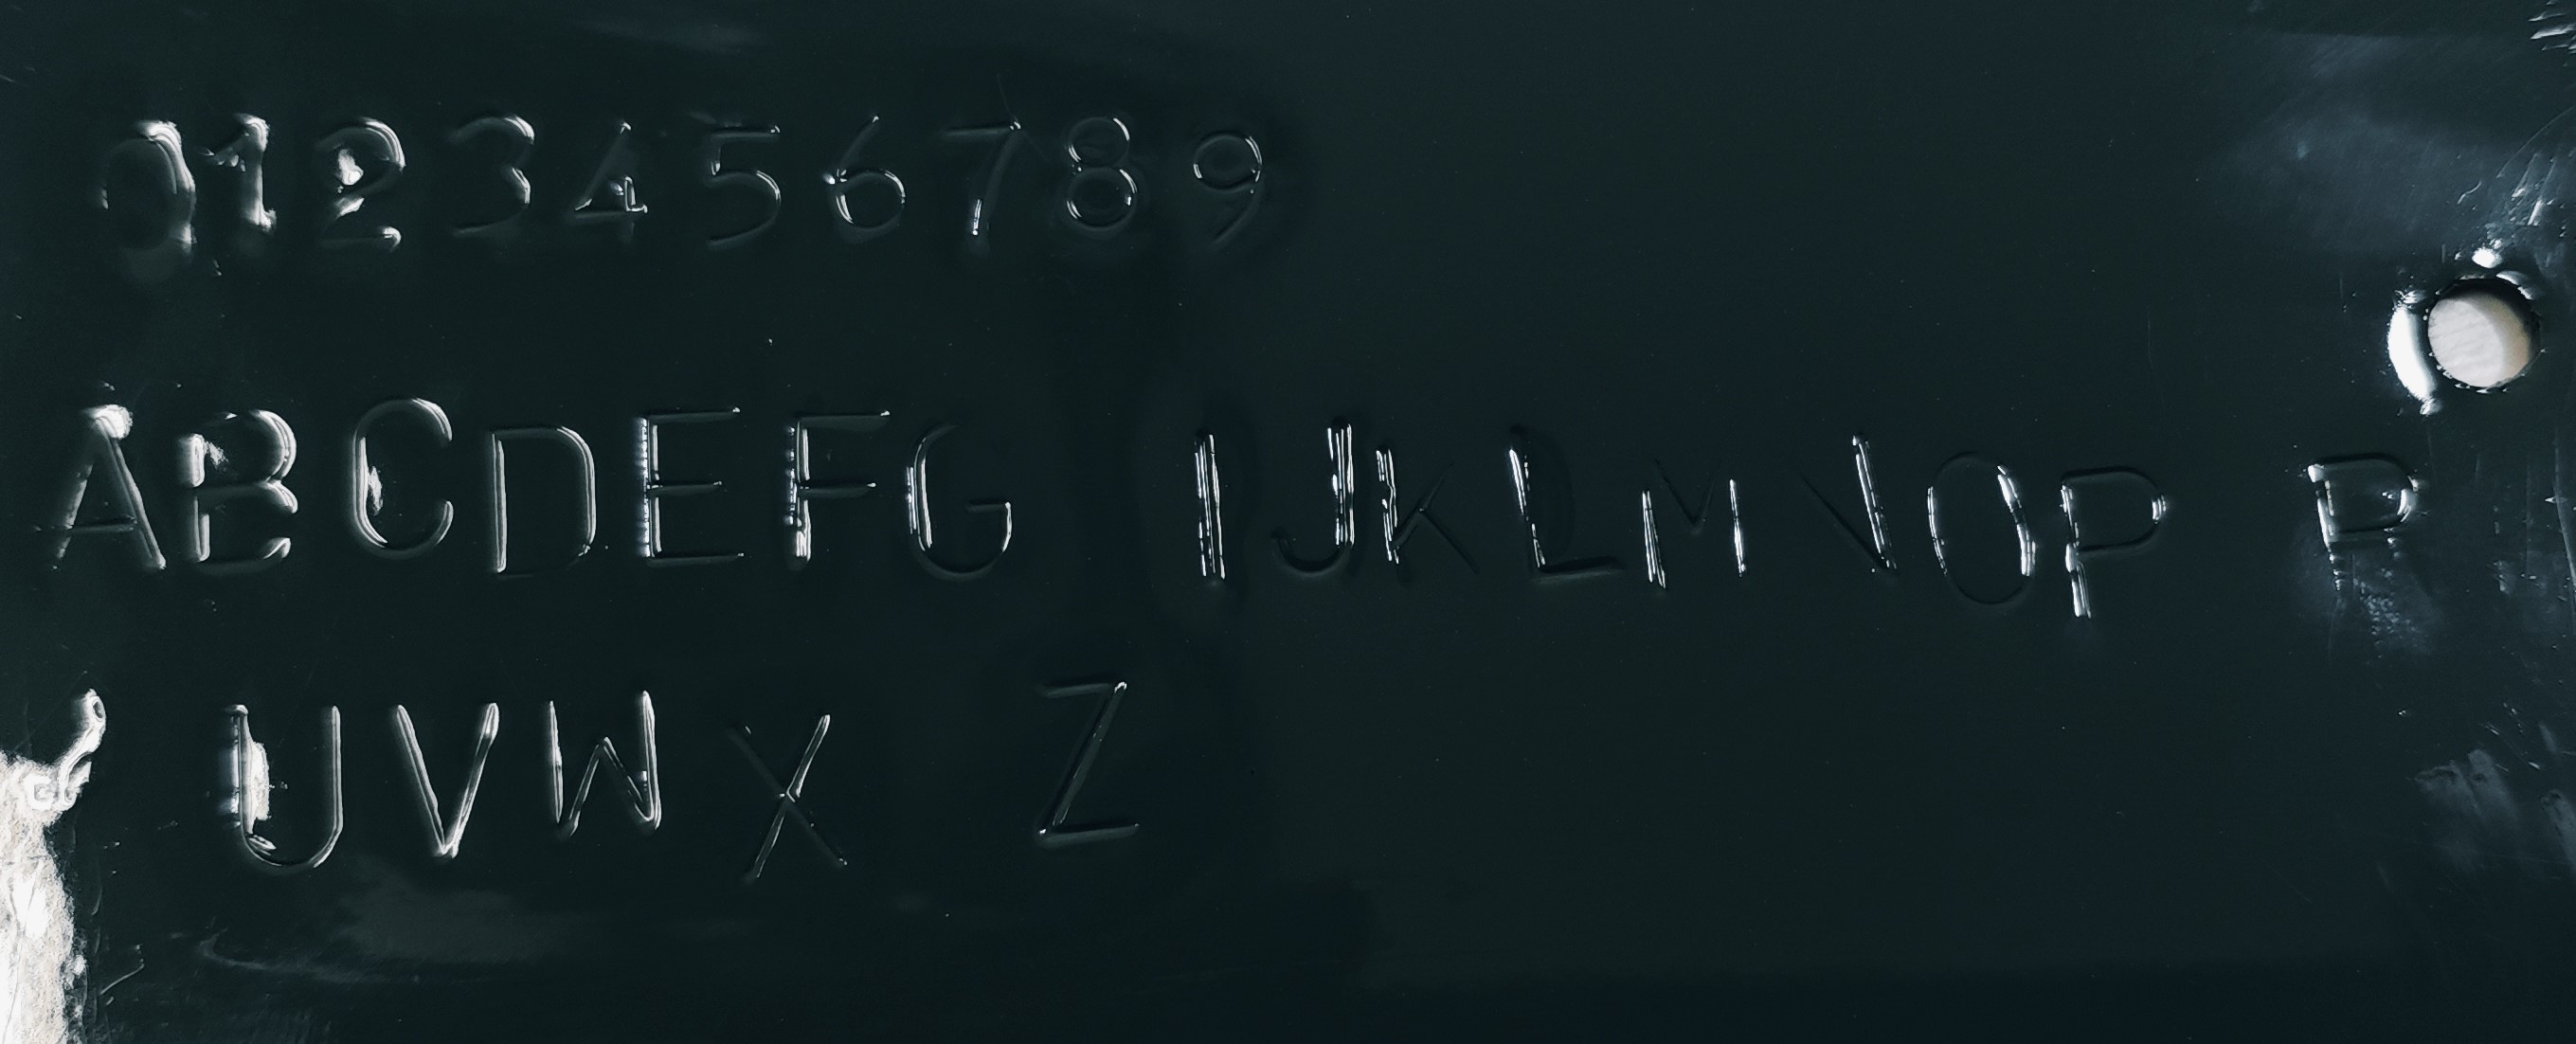 0123456789
ABCDEFG IJKLMNOP P
UVWX Z